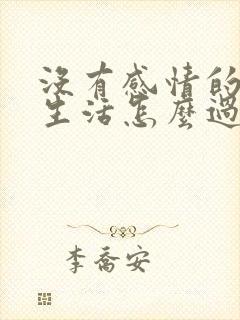 沒有感情的
生活怎麼過
李喬安